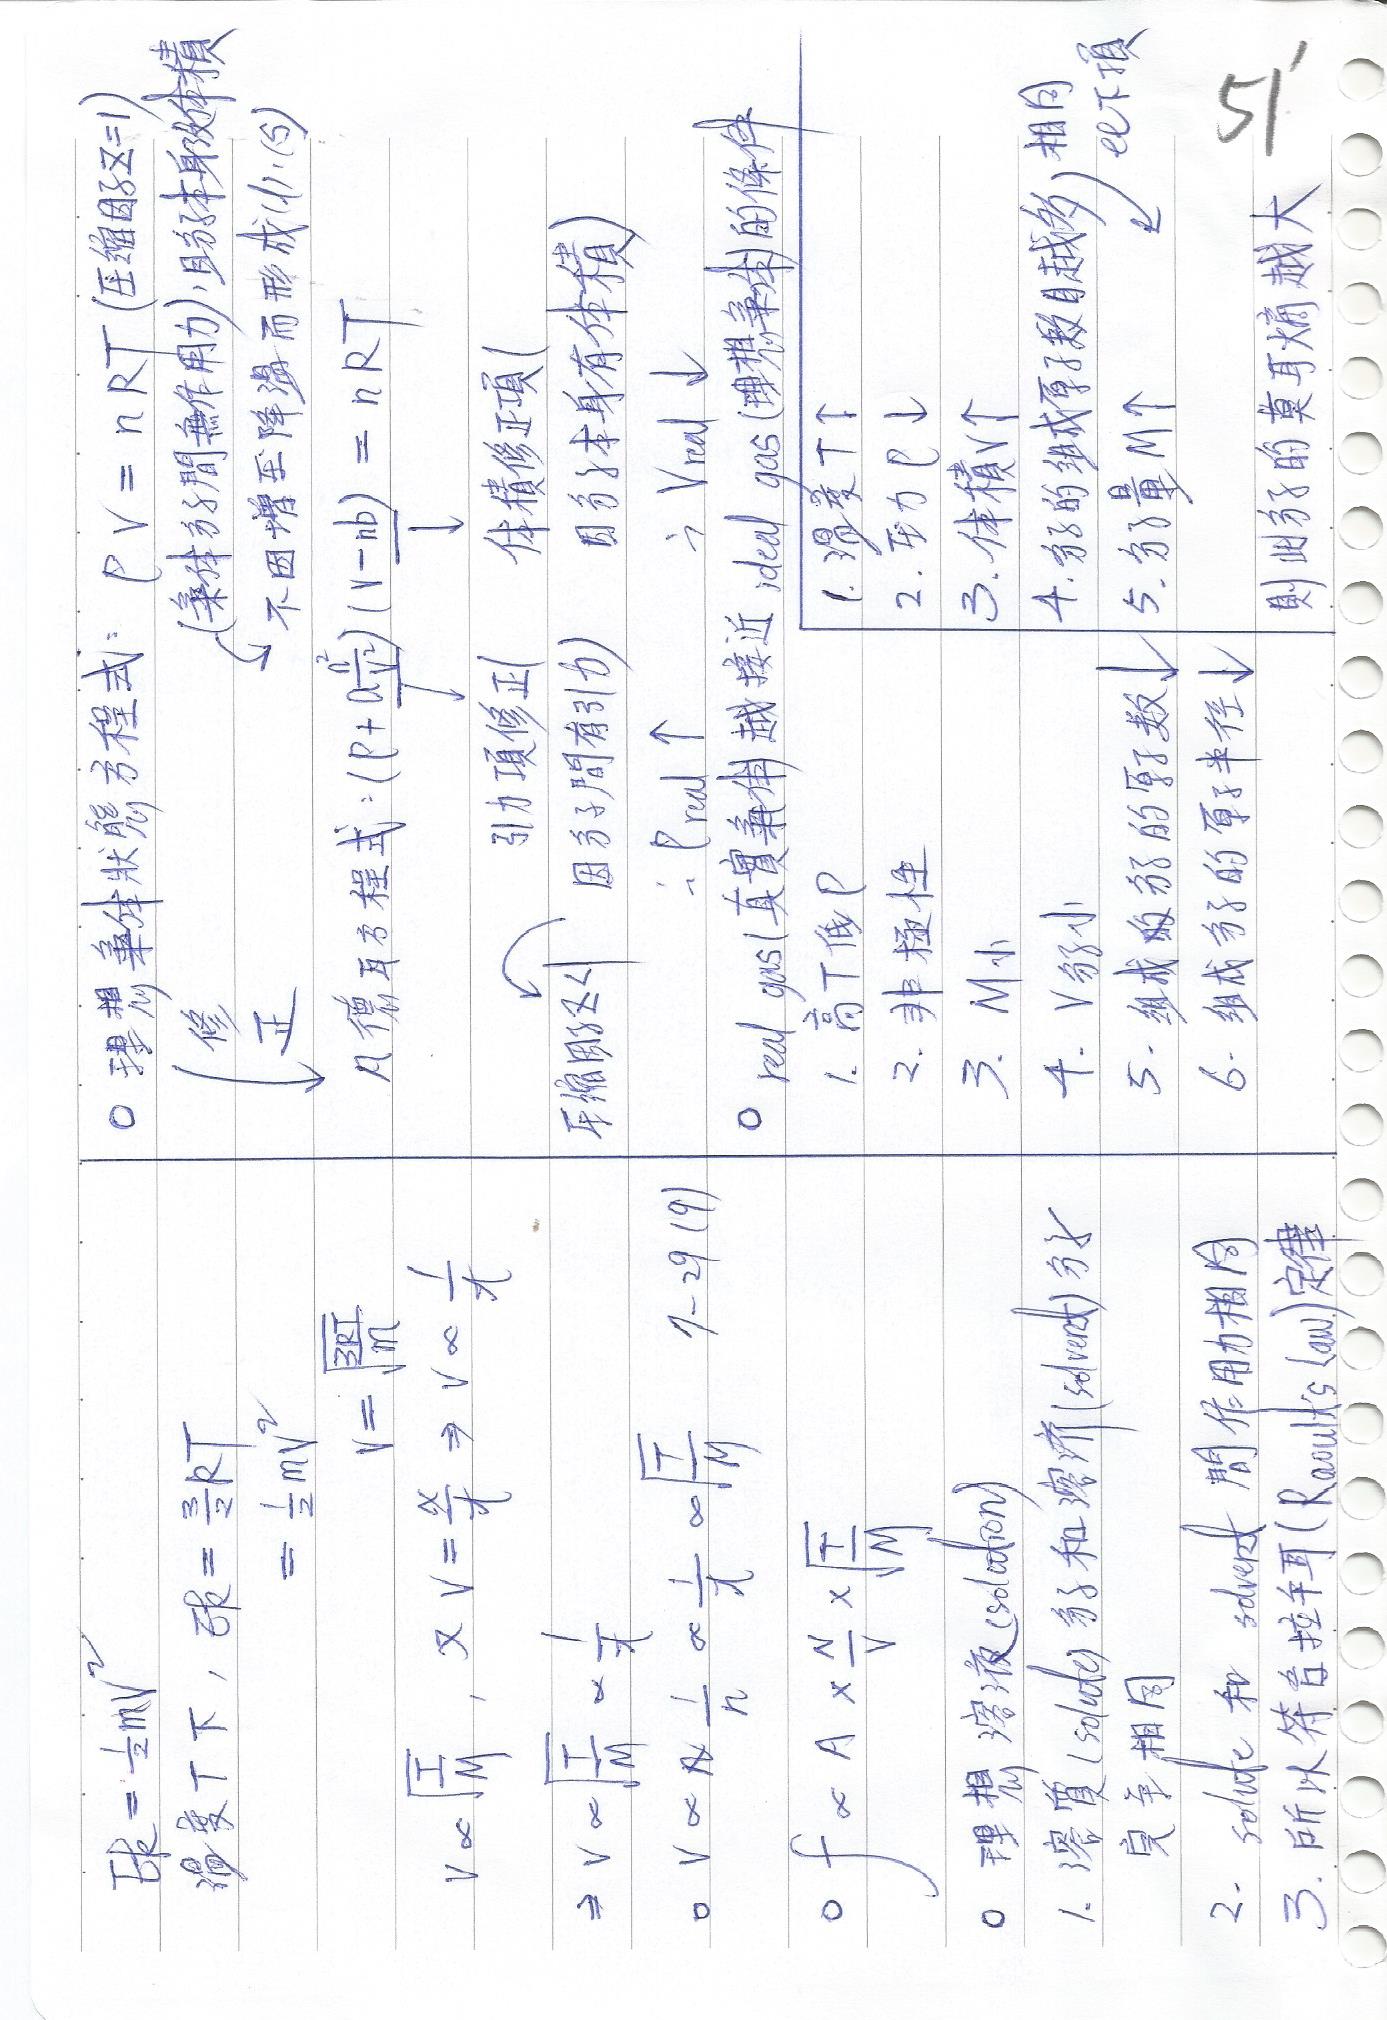 Ek = 1/2 mV²
溫度 T 下, Ek = 3/2 RT
= 1/2 mV²
V = √(3RT/m)
V ∝ √(T/M), x V = x/t ⇒ V ∝ 1/t
⇒ V ∝ √(T/M) ∝ 1/t
○ V ∝ 1/n ∝ 1/t ∝ √(T/M) 1-29 (9)
○ f ∝ A × N/V × √(T/M)
○ 理想溶液(solution)
1. 溶質(solute)分子和溶济(solvent)分子
完全相同
2. solute 和 solvent 間作用力相同
3. 所以符合拉午耳(Raoult's Law)定律
○ 理想氣体狀態方程式: PV = nRT (压缩因子Z=1)
(氣体分子間無作用力),且分子本身沒体積
不因增至降溫而形成(l)、(s)
修正
凡德瓦方程式: (P + a n²/V²)(V-nb) = nRT
引力項修正( 体積修正項(
压缩因子Z< 因分子間有引力) 因分子本身有体積)
∴ Preal ↑ ∴ Vreal ↓
○ real gas(真實氣体)越接近 ideal gas(理想氣体)的條件
1. 高T低P
2. 非極性
3. M小
4. V分子小
5. 組成的分子的原子數↓
6. 組成分子的原子半徑↓
1. 溫度T↑
2. 压力P↓
3. 体積V↑
4. 分子的組成原子數目越多) 相同
5. 分子量M↑ 比下項
則此分子的莫耳熵越大
51'